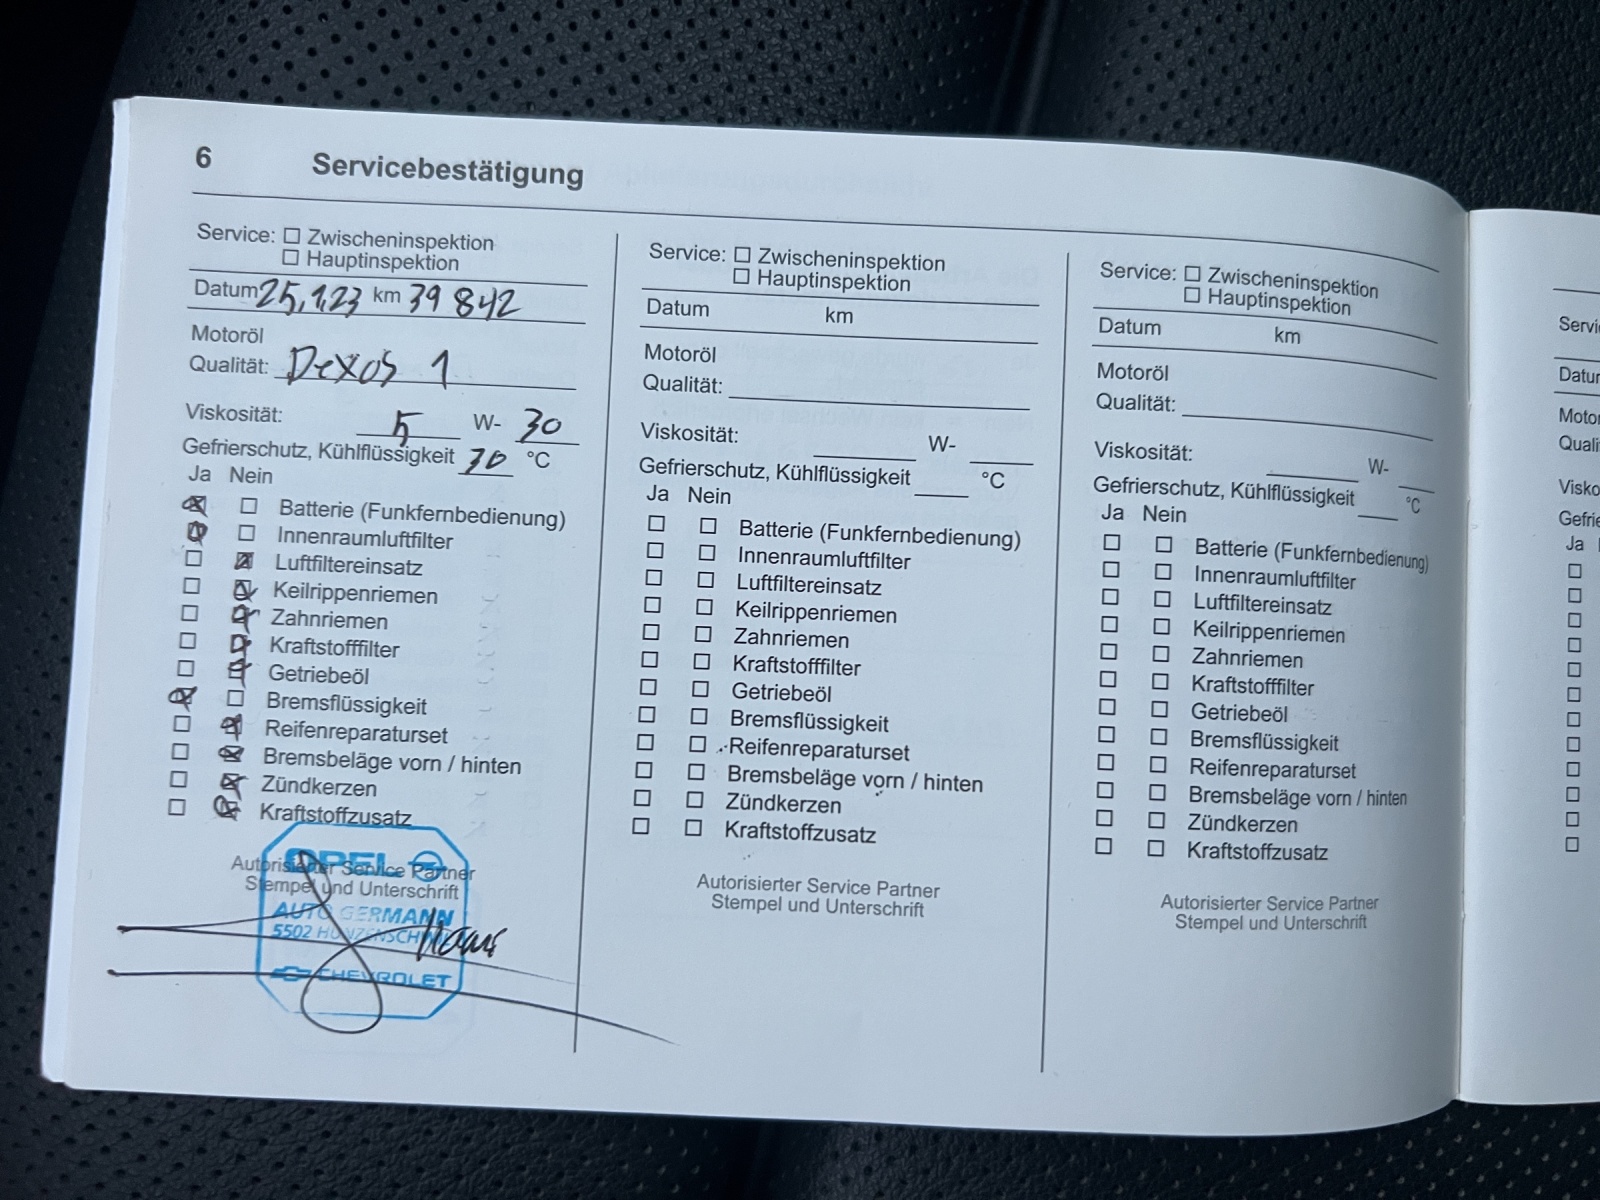 6 Servicebestätigung
Service: ☐ Zwischeninspektion
☐ Hauptinspektion
Datum 25.1.23 km 39 842
Motoröl
Qualität: Dexos 1
Viskosität: 5 W- 30
Gefrierschutz, Kühlflüssigkeit 30 °C
Ja Nein
☒ ☐ Batterie (Funkfernbedienung)
☒ ☐ Innenraumluftfilter
☐ ☒ Luftfiltereinsatz
☐ ☒ Keilrippenriemen
☐ ☒ Zahnriemen
☐ ☒ Kraftstofffilter
☐ ☒ Getriebeöl
☒ ☐ Bremsflüssigkeit
☐ ☒ Reifenreparaturset
☐ ☒ Bremsbeläge vorn / hinten
☐ ☒ Zündkerzen
☐ ☒ Kraftstoffzusatz
OPEL
Autorisierter Service Partner
Stempel und Unterschrift
AUTO GERMANN
5502 HUNZENSCHWIL
CHEVROLET
Service: ☐ Zwischeninspektion
☐ Hauptinspektion
Datum km
Motoröl
Qualität:
Viskosität: W-
Gefrierschutz, Kühlflüssigkeit °C
Ja Nein
☐ ☐ Batterie (Funkfernbedienung)
☐ ☐ Innenraumluftfilter
☐ ☐ Luftfiltereinsatz
☐ ☐ Keilrippenriemen
☐ ☐ Zahnriemen
☐ ☐ Kraftstofffilter
☐ ☐ Getriebeöl
☐ ☐ Bremsflüssigkeit
☐ ☐ Reifenreparaturset
☐ ☐ Bremsbeläge vorn / hinten
☐ ☐ Zündkerzen
☐ ☐ Kraftstoffzusatz
Autorisierter Service Partner
Stempel und Unterschrift
Service: ☐ Zwischeninspektion
☐ Hauptinspektion
Datum km
Motoröl
Qualität:
Viskosität: W-
Gefrierschutz, Kühlflüssigkeit °C
Ja Nein
☐ ☐ Batterie (Funkfernbedienung)
☐ ☐ Innenraumluftfilter
☐ ☐ Luftfiltereinsatz
☐ ☐ Keilrippenriemen
☐ ☐ Zahnriemen
☐ ☐ Kraftstofffilter
☐ ☐ Getriebeöl
☐ ☐ Bremsflüssigkeit
☐ ☐ Reifenreparaturset
☐ ☐ Bremsbeläge vorn / hinten
☐ ☐ Zündkerzen
☐ ☐ Kraftstoffzusatz
Autorisierter Service Partner
Stempel und Unterschrift
Servi
Datur
Motor
Quali
Visko
Gefrie
Ja